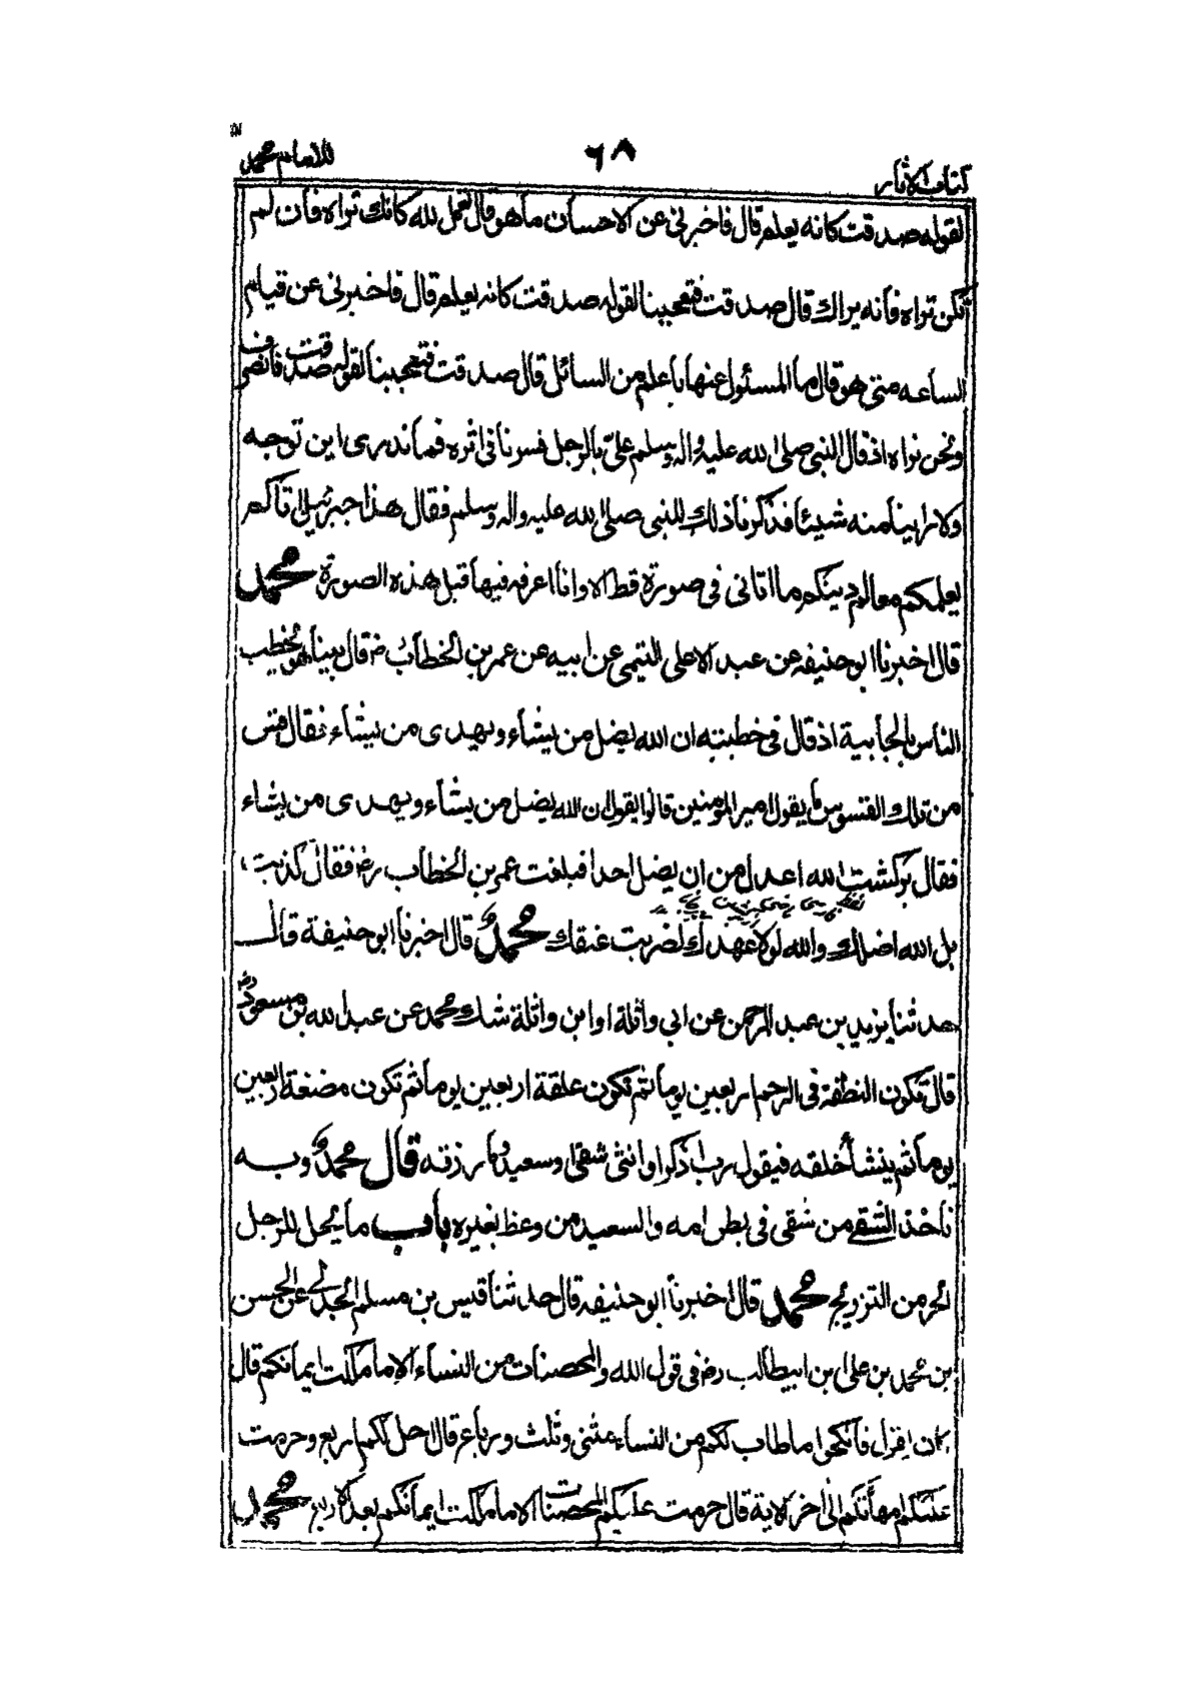 كتاب الآثار ٦٨ للامام محمد
لقوله صدقت كانه يعلم قال فاخبرنى عن الاحسان ما هو قال تعمل لله كانك تراه فان لم
تكن تراه فانه يراك قال صدقت فتعجبنا لقوله صدقت كانه يعلم قال فاخبرنى عن قيام
الساعه متى هو قال ما المسئول عنها باعلم من السائل قال صدقت فتعجبنا لقوله صدقت فانصرف
ونحن نراه اذ قال النبى صلى الله عليه واله وسلم علىّ بالرجل فسرنا فى اثره فما ندرى اين توجه
ولا راينا منه شيئا فذكرنا ذلك للنبى صلى الله عليه واله وسلم فقال هذا جبرئيل اتاكم
يعلمكم معالم دينكم ما اتانى فى صورة قط الا وانا اعرفه فيها قبل هذه الصورة محمد
قال اخبرنا ابو حنيفه عن عبد الاعلى التيمى عن ابيه عن عمر بن الخطاب رض قال بينا هو يخطب
الناس بالجابية اذ قال فى خطبته ان الله يضل من يشاء ويهدى من يشاء فقال قس
من تلك القسوس ما يقول امير المومنين قالوا يقول ان الله يضل من يشاء ويهدى من يشاء
فقال بركشت الله اعدل من ان يضل احدا فبلغت عمر بن الخطاب رض فقال كذبت
بل الله اضلك والله لولا عهدك لضربت عنقك محمد قال اخبرنا ابو حنيفة قال
حدثنا يزيد بن عبد الرحمن عن ابي واثلة او ابن واثلة شك محمد عن عبد الله بن مسعود رض
قال تكون النطفة فى الرحم اربعين يوما ثم تكون علقة اربعين يوما ثم تكون مضغة اربعين
يوما ثم ينشأ خلقه فيقول رب اذكر او انثى شقى او سعيد وما رزقه قال محمد وبه
ناخذ الشقى من شقى فى بطن امه والسعيد من وعظ بغيره باب ما يحل للرجل
الحر من التزويج محمد قال اخبرنا ابو حنيفه قال حدثنا قيس بن مسلم الجدلى عن الحسن
بن محمد بن على ابن ابيطالب رض فى قول الله والمحصنات من النساء الا ما ملكت ايمانكم قال
كان يقول فانكحوا ما طاب لكم من النساء مثنى وثلث ورباع قال احل لكم اربع وحرمت
عليكم امهاتكم الى اخر الاية قال حرمت عليكم المحصنات الا ما ملكت ايمانكم بعد الاربع محمد